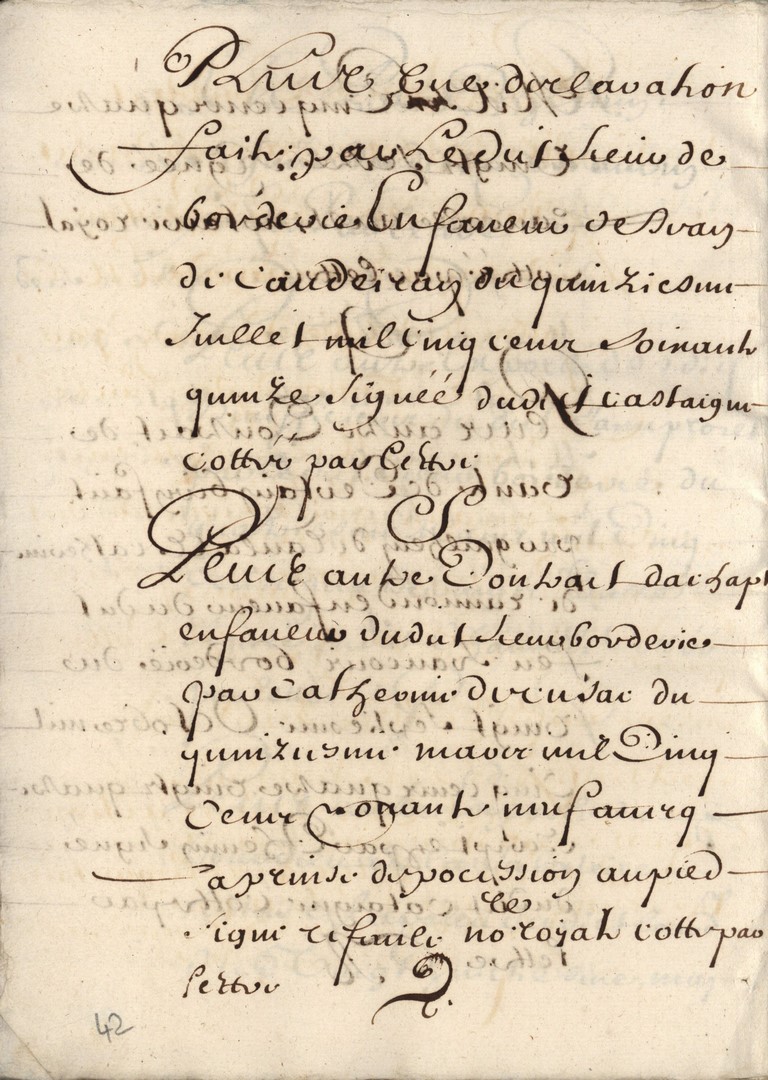 Plus une declaration
faite par ledit sieur de
borderie En faveur de Jean
de Caudeiran du quinziesme
Juillet mil Cinq cens soixante
quinze signée dudit castaigne
cotté par lettre
S
Plus autre Contrait dachapt
en faveur dudit sieur borderie
par Catherine de du
quinziesme mars mil Cinq
Cens nonante avec
la prinse de pocession au pied
signe no.re royal cotte par
lettre
42